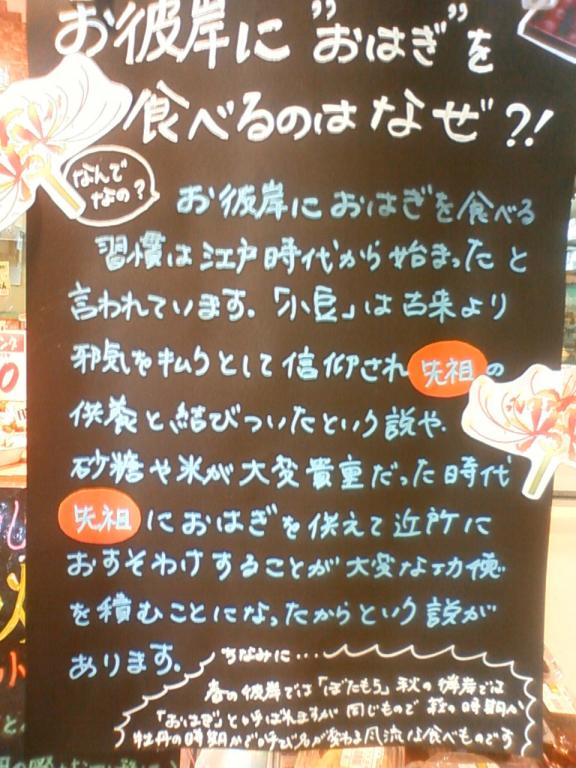 お彼岸に"おはぎ"を
食べるのはなぜ?!
なんで
なの?
お彼岸におはぎを食べる
習慣は江戸時代から始まったと
言われています。「小豆」は古来より
邪気を払うとして信仰され先祖の
供養と結びついたという説や
砂糖や米が大変貴重だった時代
先祖におはぎを供えて近所に
おすそわけすることが大変な功徳
を積むことになったからという説が
あります。
ちなみに・・・
春の彼岸では「ぼたもち」秋の彼岸では
「おはぎ」と呼ばれますが同じもので萩の時期か
牡丹の時期かで呼び名が変わる風流な食べものです